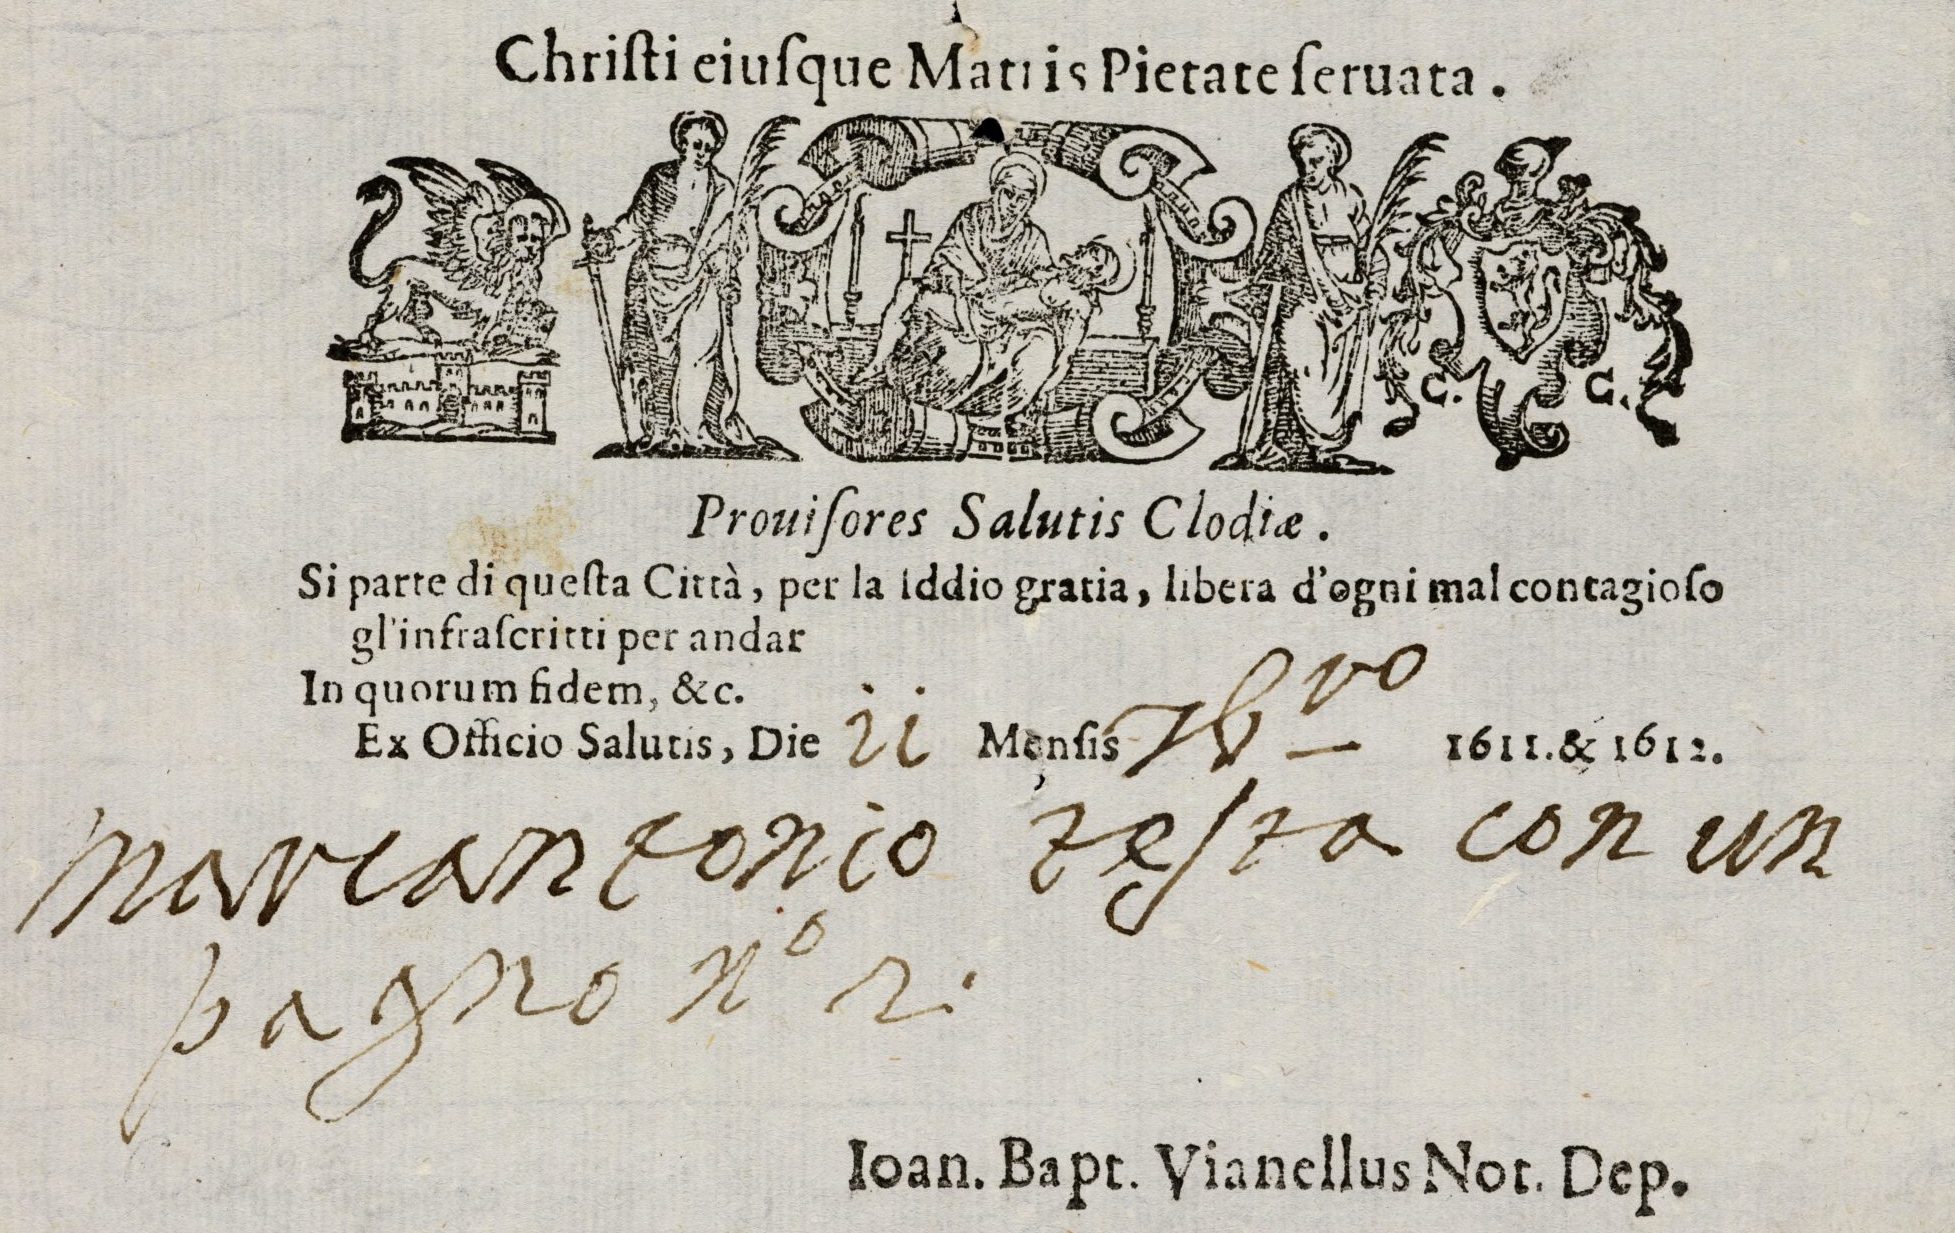 Chriſti eiuſque Matris Pietate ſeruata.
C. C.
Prouiſores Salutis Clodiæ.
Si parte di queſta Città, per la Iddio gratia, libera d'ogni mal contagioſo
gl'infraſcritti per andar
In quorum fidem, &c.
Ex Officio Salutis, Die ii Menſis 7bro 1611. & 1612.
marcantonio teſta con un
pagno nº 2.
Ioan. Bapt. Vianellus Not. Dep.